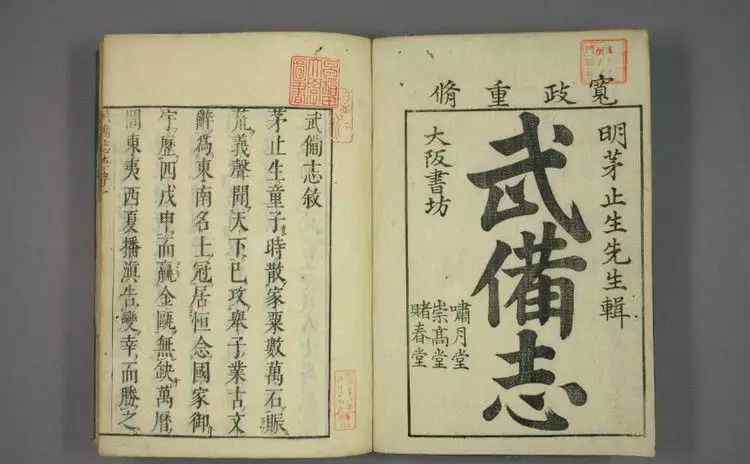 寬政重脩
明茅止生先生輯
武備志
大阪書坊
嘯月堂
崇高堂
賭春堂
武備志敘
茅止生童子時散家粟數萬石賑
荒義聲聞天下已攻舉子業古文
辭為東南名士冠居恒念國家御
宇歷四戊申而金甌無缺萬曆
間東夷西夏播滇告變幸而勝之